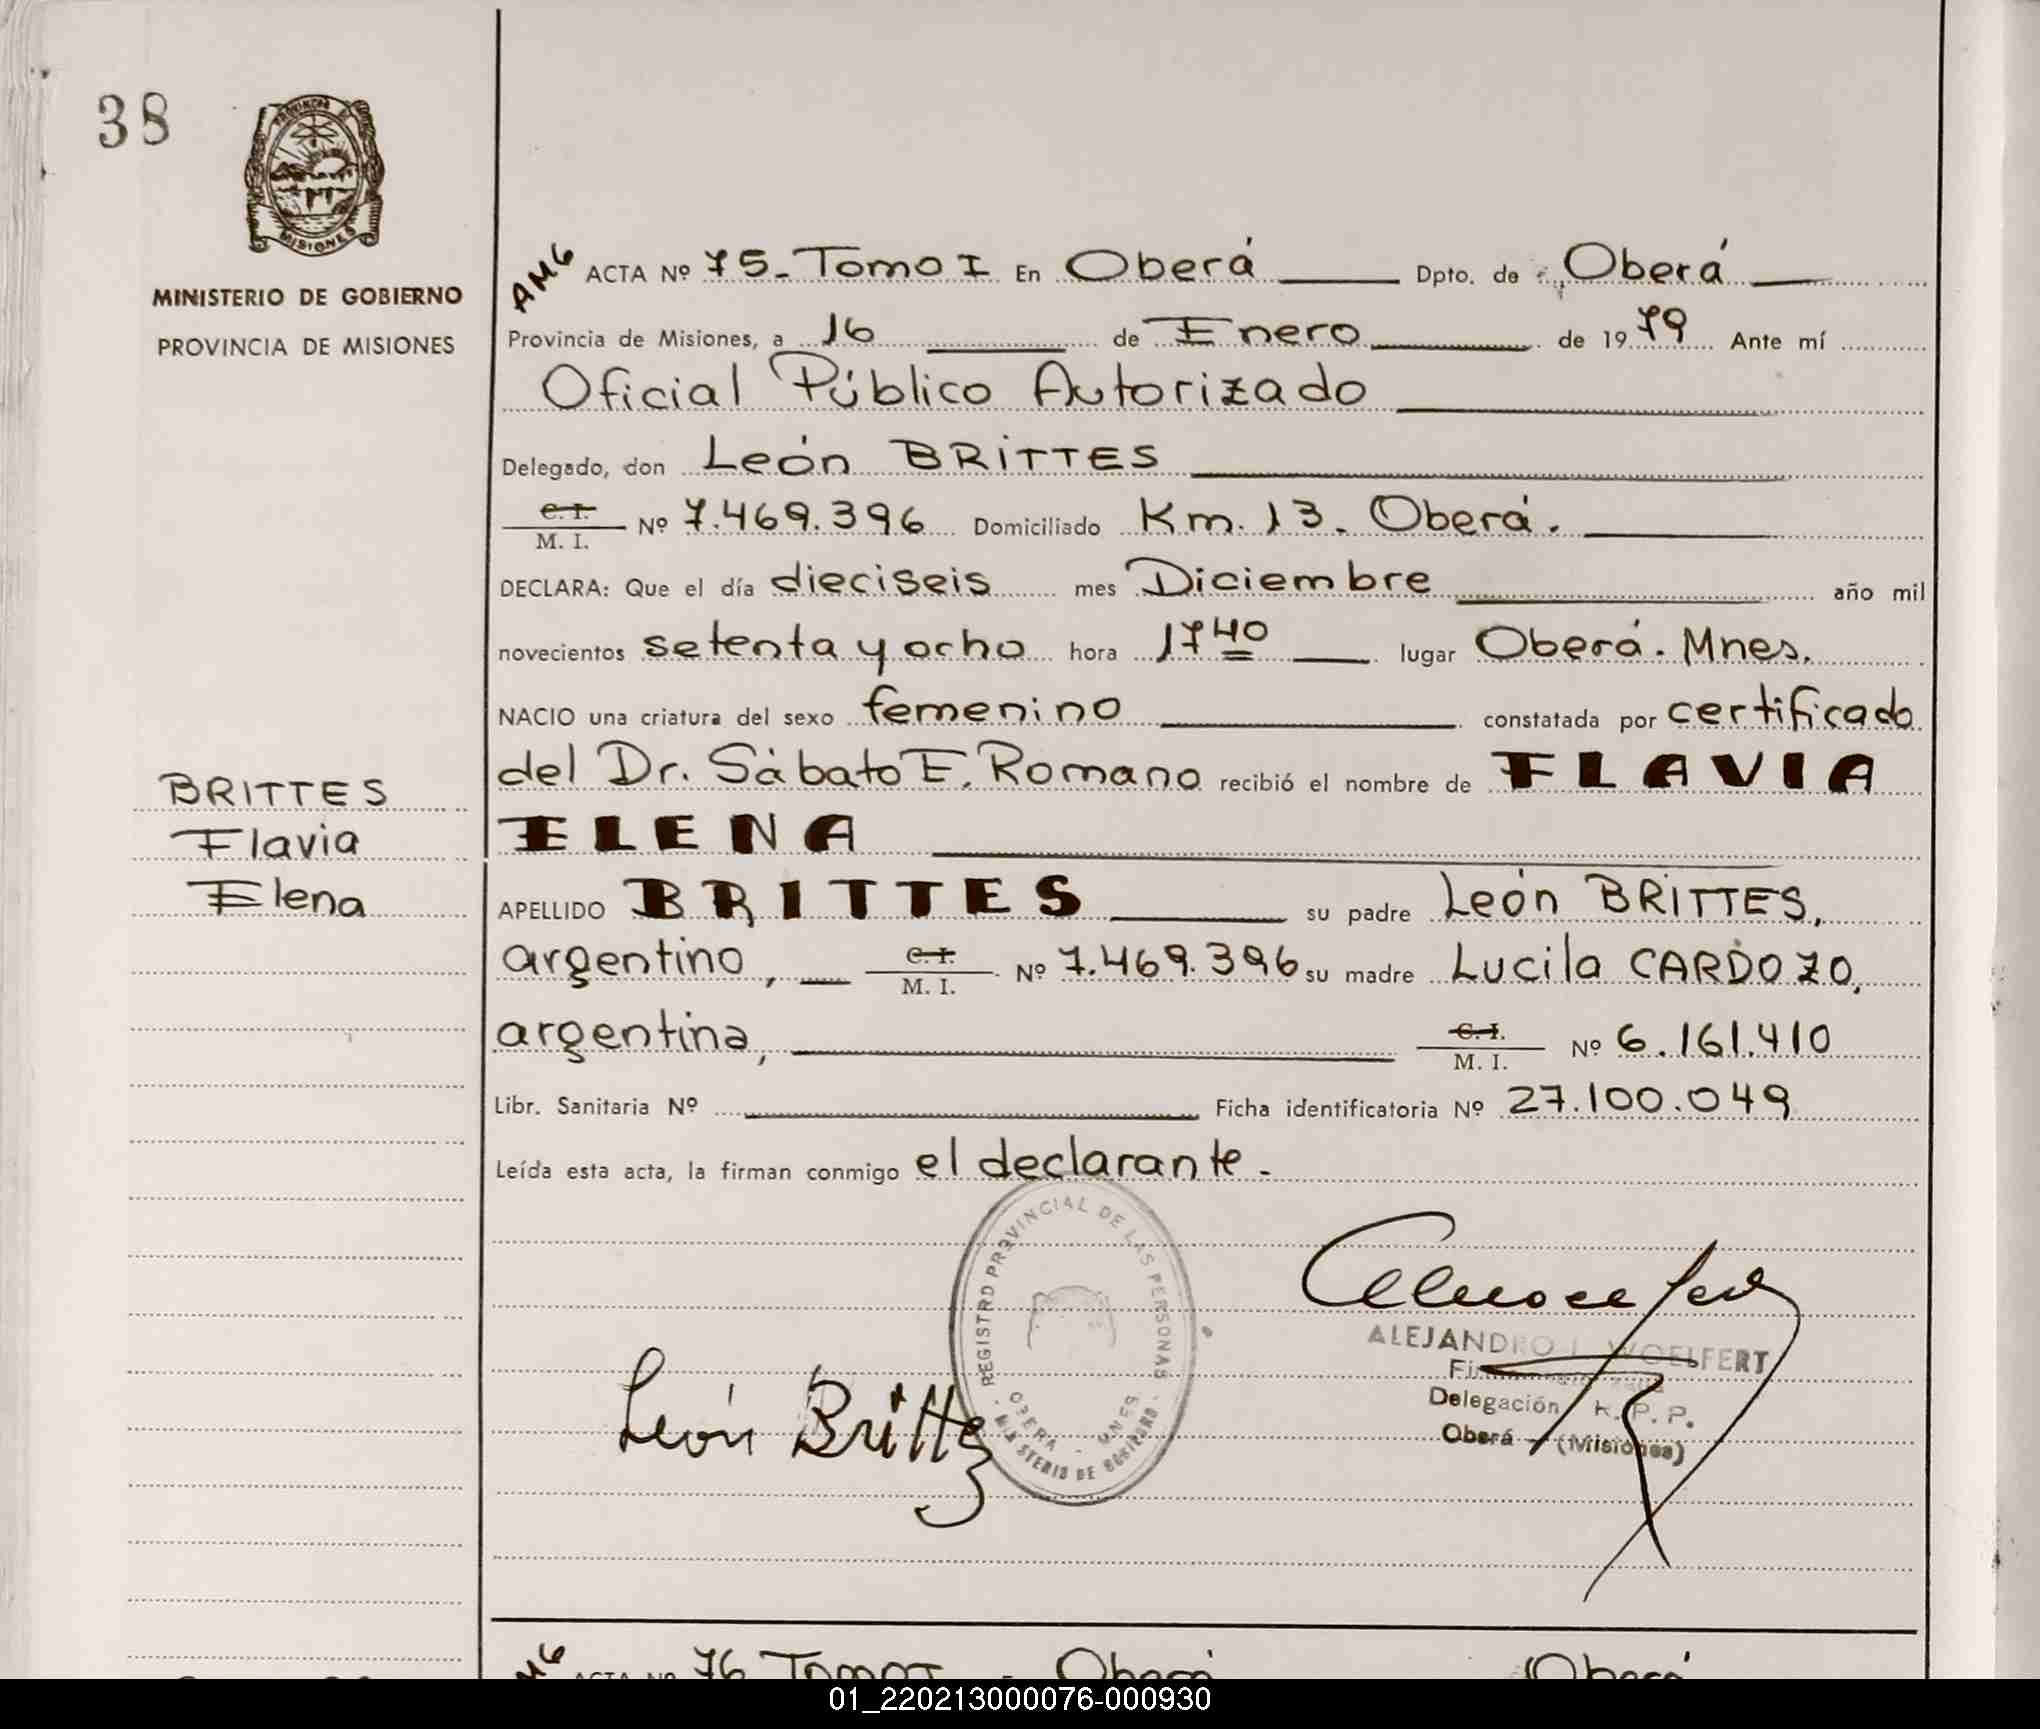 38
PROVINCIA DE
MISIONES
MINISTERIO DE GOBIERNO
PROVINCIA DE MISIONES
BRITTES
Flavia
Elena
AMG
ACTA Nº 75- Tomo I En Oberá Dpto. de Oberá
Provincia de Misiones, a 16 de Enero de 1979 Ante mí
Oficial Público Autorizado
Delegado, don León BRITTES
C. I.
M. I. Nº 7.469.396 Domiciliado Km. 13. Oberá.
DECLARA: Que el día dieciseis mes Diciembre año mil
novecientos setenta y ocho hora 17 40 lugar Oberá. Mnes.
NACIO una criatura del sexo femenino constatada por certificado
del Dr. Sábato E. Romano recibió el nombre de FLAVIA
ELENA
APELLIDO BRITTES su padre León BRITTES,
argentino, C. I.
M. I. Nº 7.469.396 su madre Lucila CARDOZO,
argentina, C. I.
M. I. Nº 6.161.410
Libr. Sanitaria Nº Ficha identificatoria Nº 27.100.049
Leída esta acta, la firman conmigo el declarante.
REGISTRO PROVINCIAL DE LAS PERSONAS
OBERA - MNES
MINISTERIO DE GOBIERNO
León Brittes
ALEJANDRO WOELFERT
Delegación R. P. P.
Oberá - (Misiones)
ACTA Nº 76 Tomo I Oberá Oberá
01_220213000076-000930